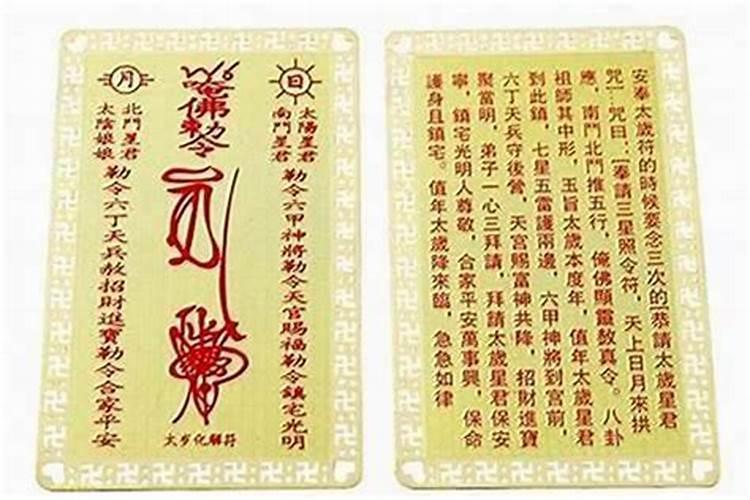 日
太陽星君
南鬥星君
勒令六甲神將勒令天官賜福勒令鎮宅光明
唵佛勅令
太岁化解符
月
北鬥星君
太陰娘娘
勒令六丁天兵赦招財進寶勒令合家平安
安奉太歲符的時候要念三次的[恭請太歲星君
咒…咒曰：[奉請三星照令符，天上日月來拱
應，南鬥北鬥推五行，俺佛顯靈敖真令。八卦
祖師其中形，玉旨太歲本度年，值年太歲星君
到此鎮，七星五雷護兩邊，六甲神將到宮前，
六丁天兵守後營，天宮賜富神共降，招財進寶
聚當明，弟子一心三拜請，拜請太歲星君保安
寧，鎮宅光明人尊敬，合家平安萬事興，保命
護身且鎮宅。值年太歲降來臨，急急如律